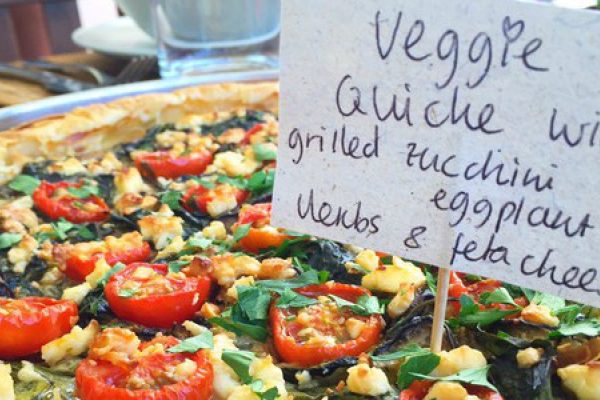 Veggie
Quiche wi
grilled zucchini
eggplant
Herbs & feta chees